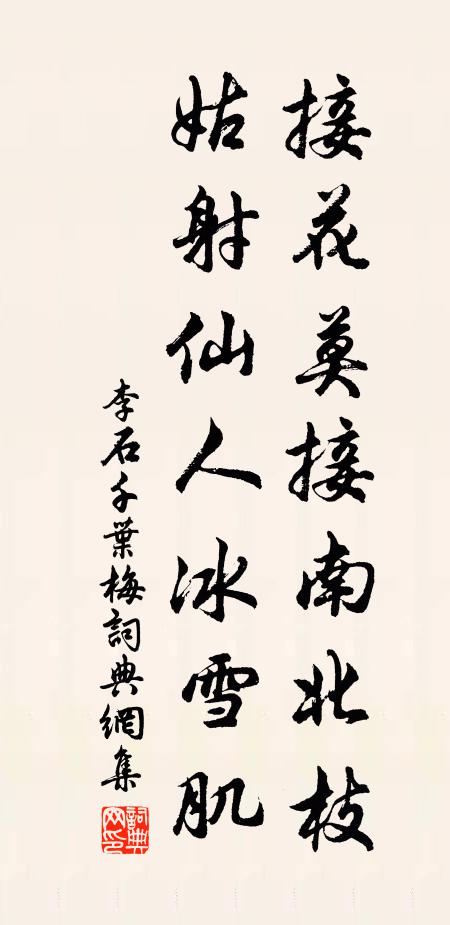 接花莫接南北枝
姑射仙人冰雪肌
李石千葉梅詞典網集
詞典網印